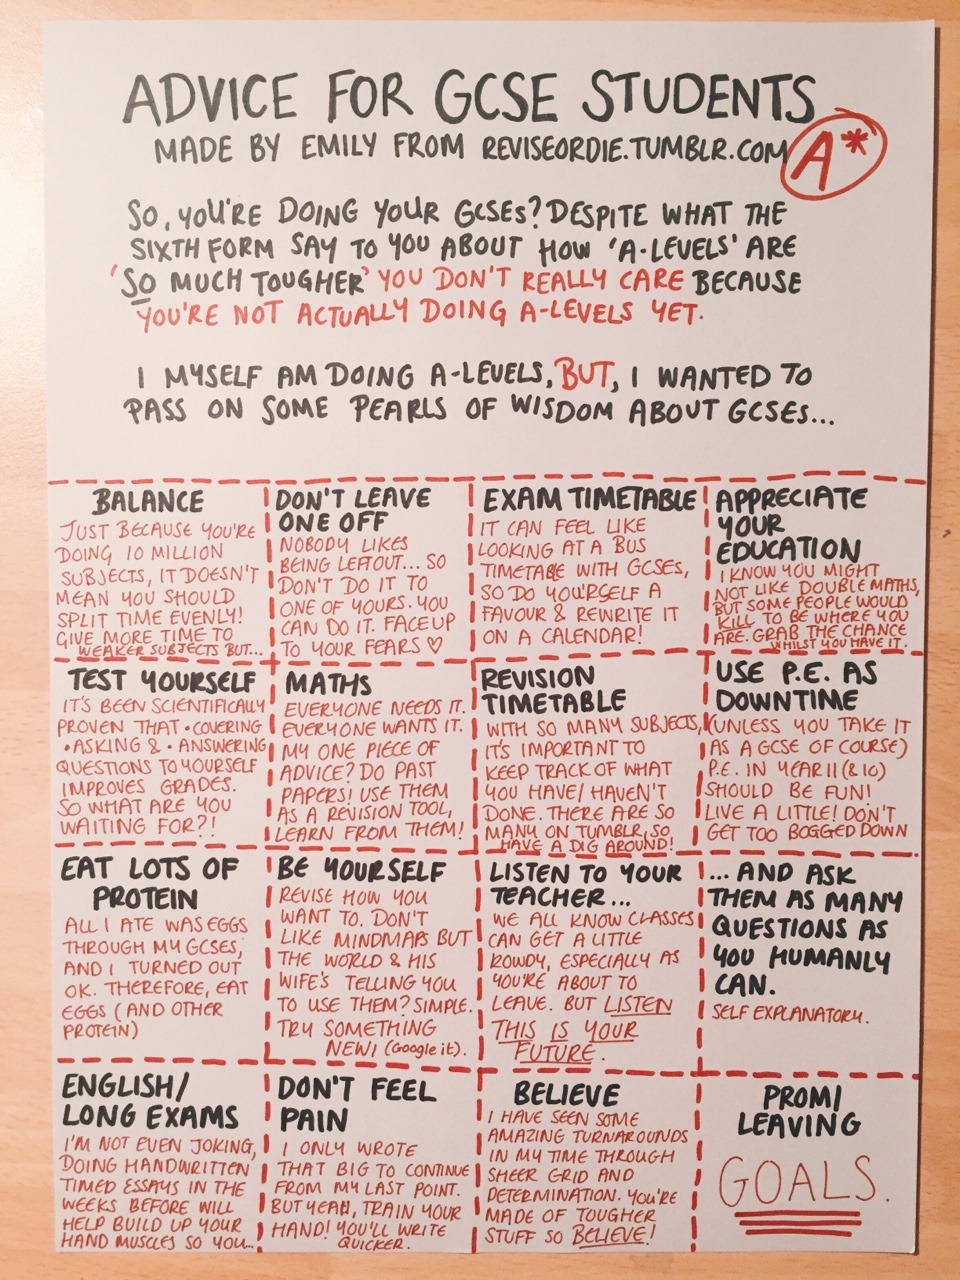 ADVICE FOR GCSE STUDENTS
MADE BY EMILY FROM REVISEORDIE.TUMBLR.COM
A*
SO, YOU'RE DOING YOUR GCSEs? DESPITE WHAT THE
SIXTH FORM SAY TO YOU ABOUT HOW 'A-LEVELS' ARE
'SO MUCH TOUGHER' YOU DON'T REALLY CARE BECAUSE
YOU'RE NOT ACTUALLY DOING A-LEVELS YET.
I MYSELF AM DOING A-LEVELS, BUT, I WANTED TO
PASS ON SOME PEARLS OF WISDOM ABOUT GCSES...
BALANCE
JUST BECAUSE YOU'RE
DOING 10 MILLION
SUBJECTS, IT DOESN'T
MEAN YOU SHOULD
SPLIT TIME EVENLY!
GIVE MORE TIME TO
WEAKER SUBJECTS BUT...
DON'T LEAVE
ONE OFF
NOBODY LIKES
BEING LEFT OUT... SO
DON'T DO IT TO
ONE OF YOURS. YOU
CAN DO IT. FACE UP
TO YOUR FEARS ♡
EXAM TIMETABLE
IT CAN FEEL LIKE
LOOKING AT A BUS
TIMETABLE WITH GCSES,
SO DO YOURSELF A
FAVOUR & REWRITE IT
ON A CALENDAR!
APPRECIATE
YOUR
EDUCATION
I KNOW YOU MIGHT
NOT LIKE DOUBLE MATHS,
BUT SOME PEOPLE WOULD
KILL TO BE WHERE YOU
ARE. GRAB THE CHANCE
WHILST YOU HAVE IT.
TEST YOURSELF
IT'S BEEN SCIENTIFICALLY
PROVEN THAT •COVERING
•ASKING & •ANSWERING
QUESTIONS TO YOURSELF
IMPROVES GRADES.
SO WHAT ARE YOU
WAITING FOR?!
MATHS
EVERYONE NEEDS IT.
EVERYONE WANTS IT.
MY ONE PIECE OF
ADVICE? DO PAST
PAPERS! USE THEM
AS A REVISION TOOL,
LEARN FROM THEM!
REVISION
TIMETABLE
WITH SO MANY SUBJECTS,
IT'S IMPORTANT TO
KEEP TRACK OF WHAT
YOU HAVE/HAVEN'T
DONE. THERE ARE SO
MANY ON TUMBLR, SO
HAVE A DIG AROUND!
USE P.E. AS
DOWNTIME
(UNLESS YOU TAKE IT
AS A GCSE OF COURSE)
P.E. IN YEAR 11 (& 10)
SHOULD BE FUN!
LIVE A LITTLE! DON'T
GET TOO BOGGED DOWN
EAT LOTS OF
PROTEIN
ALL I ATE WAS EGGS
THROUGH MY GCSES,
AND I TURNED OUT
OK. THEREFORE, EAT
EGGS (AND OTHER
PROTEIN)
BE YOURSELF
REVISE HOW YOU
WANT TO. DON'T
LIKE MINDMAPS BUT
THE WORLD & HIS
WIFE'S TELLING YOU
TO USE THEM? SIMPLE.
TRY SOMETHING
NEW! (Google it).
LISTEN TO YOUR
TEACHER...
WE ALL KNOW CLASSES
CAN GET A LITTLE
ROWDY, ESPECIALLY AS
YOU'RE ABOUT TO
LEAVE. BUT LISTEN
THIS IS YOUR
FUTURE.
... AND ASK
THEM AS MANY
QUESTIONS AS
YOU HUMANLY
CAN.
SELF EXPLANATORY.
ENGLISH/
LONG EXAMS
I'M NOT EVEN JOKING,
DOING HANDWRITTEN
TIMED ESSAYS IN THE
WEEKS BEFORE WILL
HELP BUILD UP YOUR
HAND MUSCLES SO YOU...
DON'T FEEL
PAIN
I ONLY WROTE
THAT BIG TO CONTINUE
FROM MY LAST POINT.
BUT YEAH, TRAIN YOUR
HAND! YOU'LL WRITE
QUICKER.
BELIEVE
I HAVE SEEN SOME
AMAZING TURNAROUNDS
IN MY TIME THROUGH
SHEER GRID AND
DETERMINATION. YOU'RE
MADE OF TOUGHER
STUFF SO BELIEVE!
PROM/
LEAVING
GOALS.